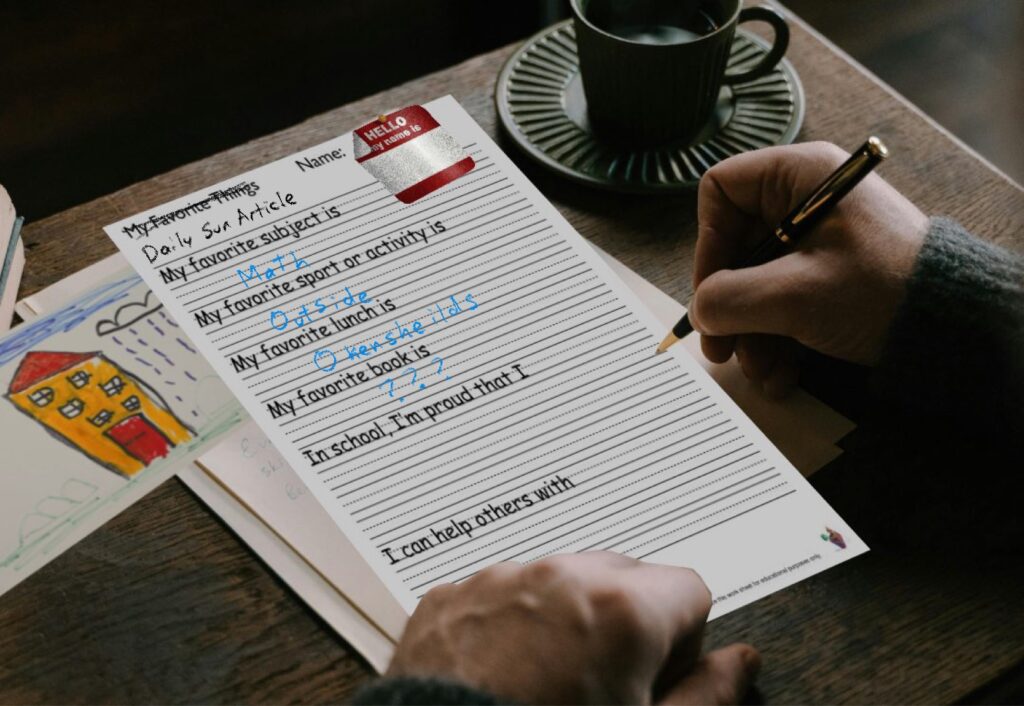 HELLO
my name is
Name:
My Favorite Things
Daily Sun Article
My favorite subject is
Math
My favorite sport or activity is
Outside
My favorite lunch is
Okensheilds
My favorite book is
? ? ?
In school, I'm proud that I
I can help others with
this work sheet for educational purposes only